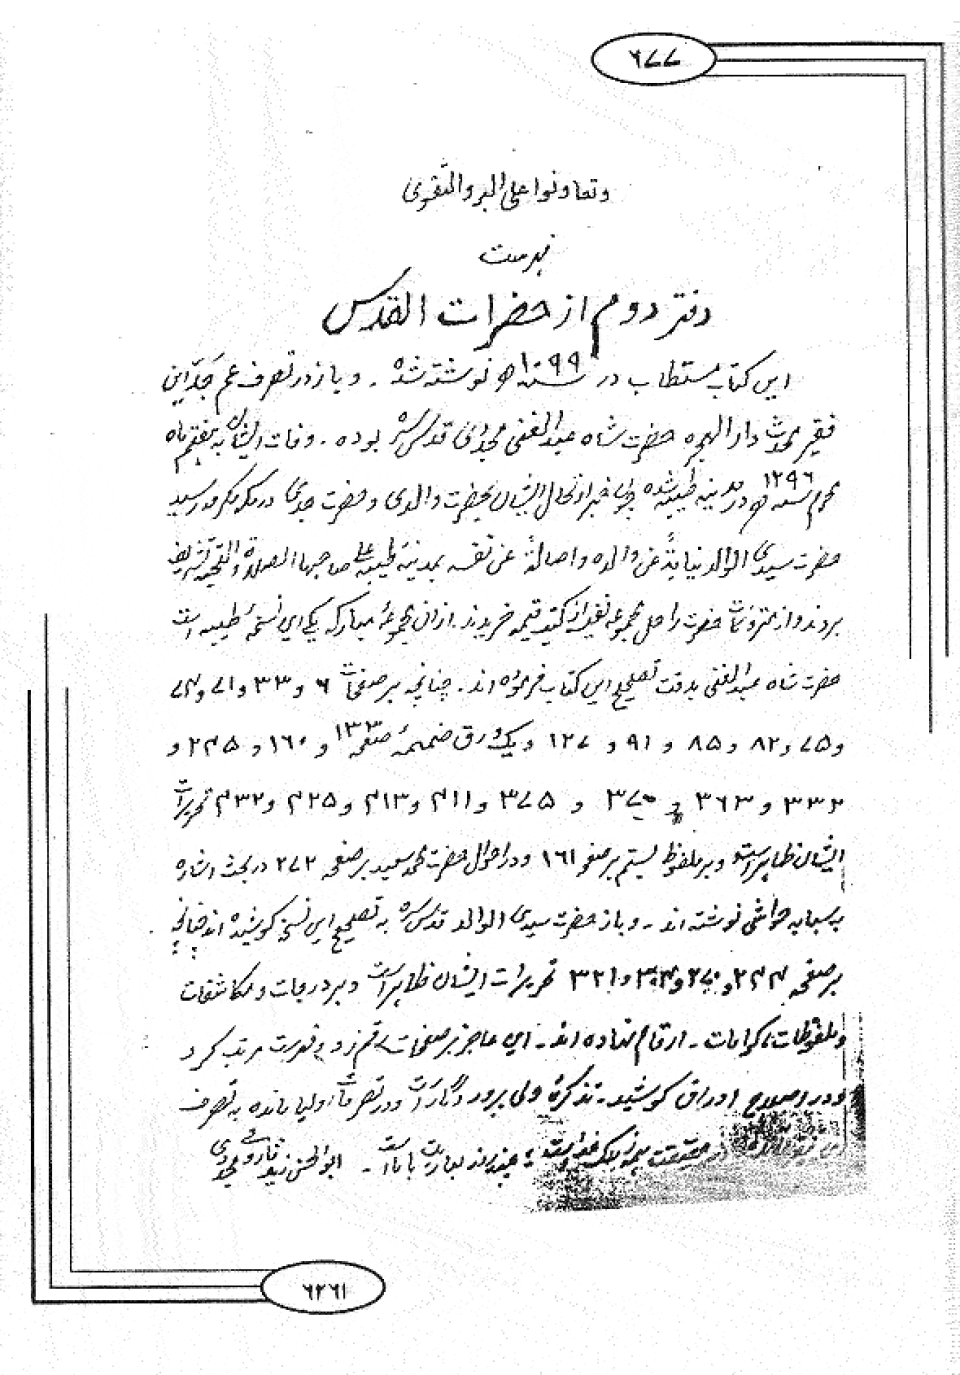 ٦٧٧
وتعاونوا علی البر والتقوی
فہرست
دفتر دوم از حضرات القدس
این کتاب مستطاب در سنه ١٠٩٩ ھ نوشته شده ۔ و باز در تصرف عم جدّ این
فقیر محدث دار الهجره حضرت شاه عبد الغنی مجددی قدس سره بوده ۔ وفات ایشان به هفتم ماه
محرم سنه ١٢٩٦ ھ در مدینه طیبه شده چوں خبر ارتحال ایشان بحضرت والدی و حضرت جدی در مکه مکرمه رسید
حضرت سیدی الوالد نیابةً عن والده واصالةً عن نفسه بمدینه طیبه علی صاحبها الصلاة والتحیة تشریف
بردند و از متروکات حضرت راحل مجموعه نفیس از کتب قیمه خریدند ۔ ازان مجموعهٔ مبارکه یکے این نسخهٔ طیبه است
حضرت شاه عبد الغنی بدقت تصحیح این کتاب فرموده اند ۔ چنانچه بر صفحات ٦ و ٣٣ و ٧١ و ٧٤
و ٧٥ و ٨٢ و ٨٥ و ٩١ و ١٢٧ و یک ورق ضمیمهٔ صفحه ١٣٣ و ١٦٠ و ٢٤٥ و
٣٣٢ و ٣٦٣ و ٣٧٠ و ٣٧٥ و ٤١١ و ٤١٣ و ٤٢٥ و ٤٣٢ تحریرات
ایشان ظاهر است و بر ملفوظ بستم بر صفحه ١٦١ و در احوال حضرت محمد سعید بر صفحه ٢٧٢ در بحث اشاره
به سبابه حواشی نوشته اند ۔ و باز حضرت سیدی الوالد قدس سره به تصحیح این نسخه کوشیده اند چنانچه
بر صفحه ٢٤٤ و ٢٧٠ و ٣٠٤ و ٣٢١ تحریرات ایشان ظاهر است و بر درجات و مکاشفات
و ملفوظات و کرامات ۔ ارقام نهاده اند ۔ این عاجز بر صفحات رقم زد و فهرست مرتب کرد
و در اصلاح اوراق کوشید ۔ تذکرهٔ ولی پرور دگار است و در تصرفات اولیا مانده به تصرف
در حقیقت همه ملک خداست ؛ چند روز بعاریت با ماست ۔ ابو الحسن زید فاروقی مجددی
٦٢٦١